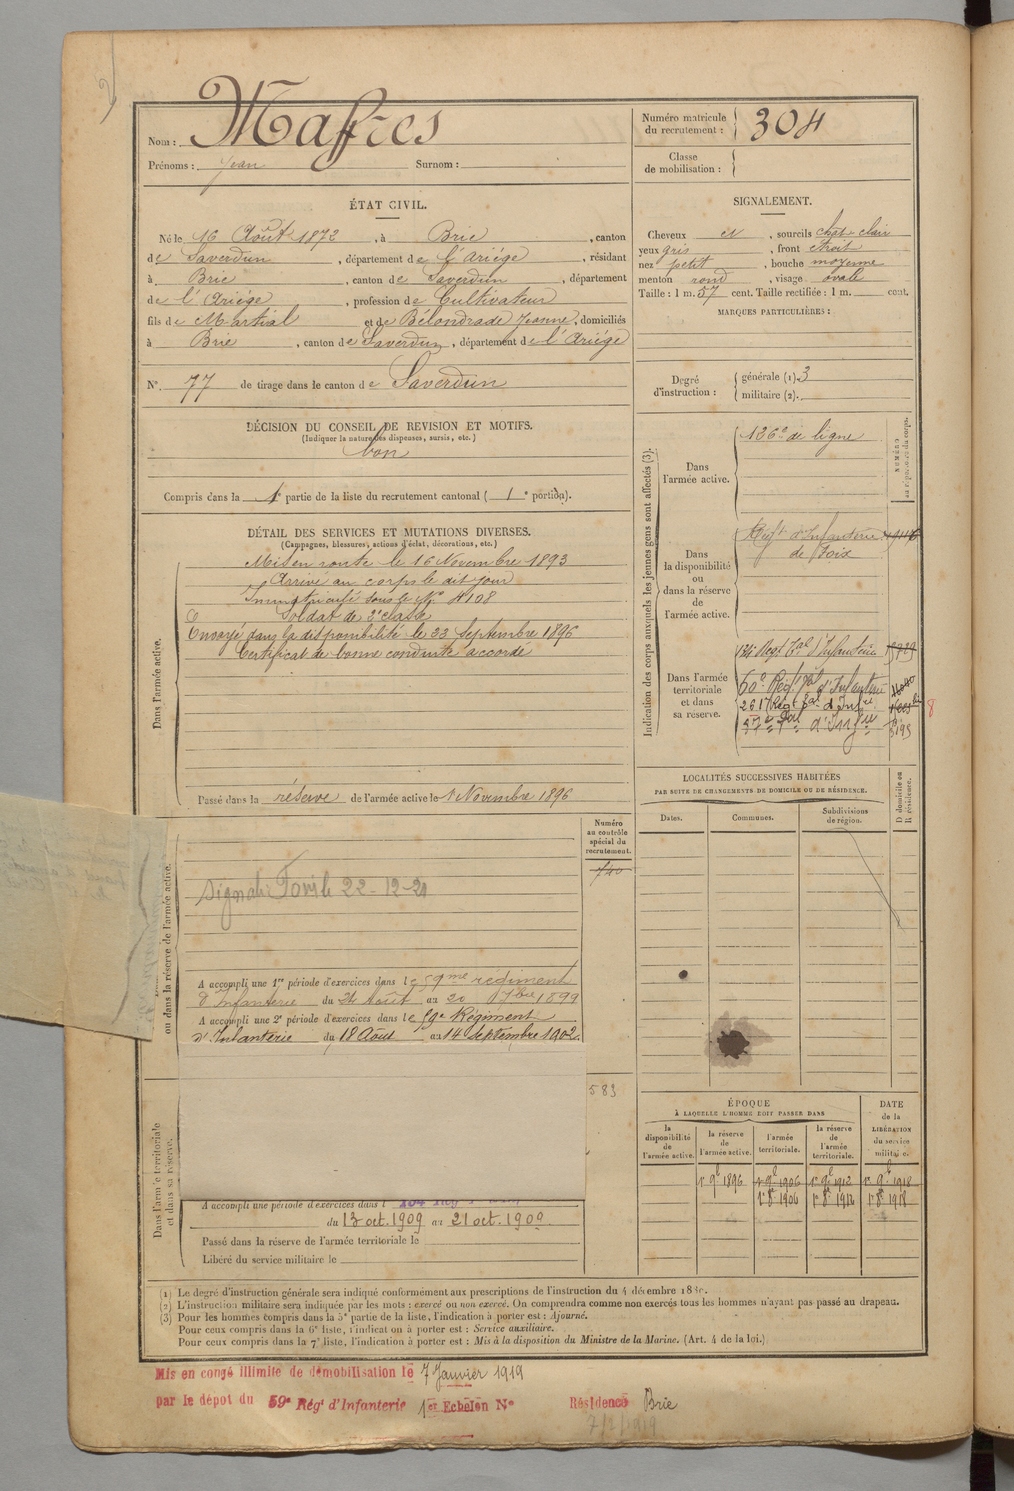 Nom : Maffres
Prénoms : Jean Surnom :
Numéro matricule du recrutement : 304
Classe de mobilisation :
ÉTAT CIVIL.
Né le 16 Août 1872, à Brie, canton
de Saverdun, département de l'Ariége, résidant
à Brie, canton de Saverdun, département
de l'Ariége, profession de Cultivateur
fils de Martial et de Bélondrade Jeanne, domiciliés
à Brie, canton de Saverdun, département de l'Ariége
N°. 77 de tirage dans le canton de Saverdun
DÉCISION DU CONSEIL DE REVISION ET MOTIFS.
(Indiquer la nature des dispenses, sursis, etc.)
bon
Compris dans la 1e partie de la liste du recrutement cantonal (1e portion).
SIGNALEMENT.
Cheveux et, sourcils chat clair
yeux gris, front étroit
nez petit, bouche moyenne
menton rond, visage ovale
Taille : 1 m. 57 cent. Taille rectifiée : 1 m. cent.
MARQUES PARTICULIÈRES :
Degré d'instruction : générale (1). 3
militaire (2).
DÉTAIL DES SERVICES ET MUTATIONS DIVERSES.
(Campagnes, blessures, actions d'éclat, décorations, etc.)
Dans l'armée active.
Mis en route le 16 Novembre 1893
Arrivé au corps le dit jour
Immatriculé sous le No 4108
Soldat de 2e classe
Envoyé dans la disponibilité le 23 Septembre 1896
Certificat de bonne conduite accordé
Passé dans la réserve de l'armée active le 1 Novembre 1896
Indication des corps auxquels les jeunes gens sont affectés (3).
NUMÉRO au répertoire du corps.
Dans l'armée active.
126e de ligne
Dans la disponibilité ou dans la réserve de l'armée active.
Régt d'Infanterie
de Foix
Dans l'armée territoriale et dans sa réserve.
134 Régt Tal d'Infanterie
60e Régt Tal d'Infanterie
261e Régt Tal d'Infie
57e Tal d'Infie
8
LOCALITÉS SUCCESSIVES HABITÉES
PAR SUITE DE CHANGEMENTS DE DOMICILE OU DE RÉSIDENCE.
Dates. Communes. Subdivisions de région. D domicile ou R résidence.
ou dans la réserve de l'armée active.
Numéro au contrôle spécial du recrutement.
740
22-12-20
A accompli une 1re période d'exercices dans le 59me régiment
d'Infanterie du 24 Août au 20 7bre 1899
A accompli une 2e période d'exercices dans le 59e Régiment
d'Infanterie du 18 Août au 14 Septembre 1902.
583
Dans l'armée territoriale et dans sa réserve.
A accompli une période d'exercices dans l
du 13 oct. 1909 au 21 oct. 1909
Passé dans la réserve de l'armée territoriale le
Libéré du service militaire le
ÉPOQUE
À LAQUELLE L'HOMME DOIT PASSER DANS
la disponibilité de l'armée active. la réserve de l'armée active. l'armée territoriale. la réserve de l'armée territoriale.
DATE de la LIBÉRATION du service militaire.
1er 9e 1896 1er 9e 1906 1er 9e 1912 1er 9e 1918
1er 8e 1906 1er 8e 1912 1er 8e 1918
(1) Le degré d'instruction générale sera indiqué conformément aux prescriptions de l'instruction du 4 décembre
(2) L'instruction militaire sera indiquée par les mots : exercé ou non exercé. On comprendra comme non exercés tous les hommes n'ayant pas passé au drapeau.
(3) Pour les hommes compris dans la 5e partie de la liste, l'indication à porter est : Ajourné.
Pour ceux compris dans la 6e liste, l'indication à porter est : Service auxiliaire.
Pour ceux compris dans la 7e liste, l'indication à porter est : Mis à la disposition du Ministre de la Marine. (Art. 4 de la loi.)
Mis en congé illimité de démobilisation le 7 Janvier 1919
par le dépot du 59e Régt d'Infanterie 1er Echelon No Résidence Brie
7/2/1919